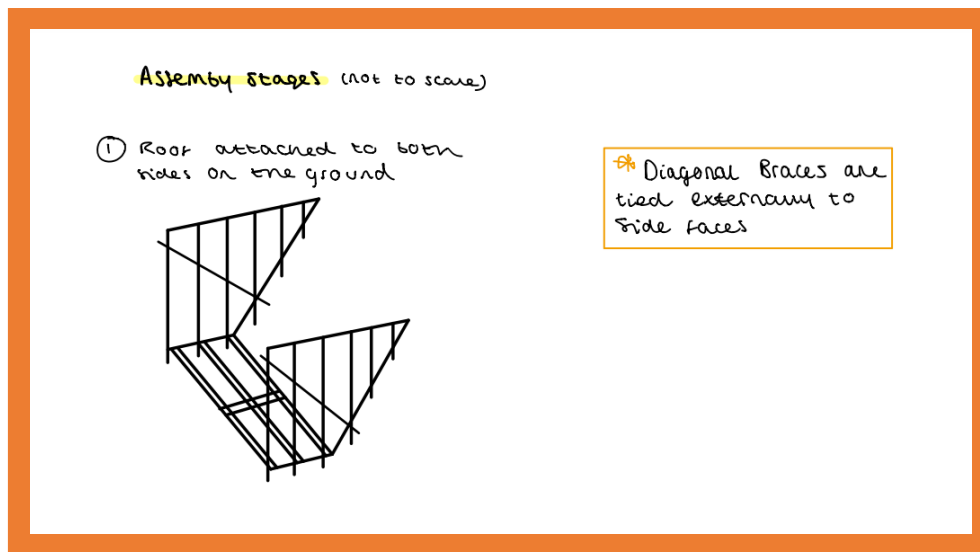 Assemby stages (not to scale)
① Roof attached to both
sides on the ground
* Diagonal Braces are
tied externally to
side faces